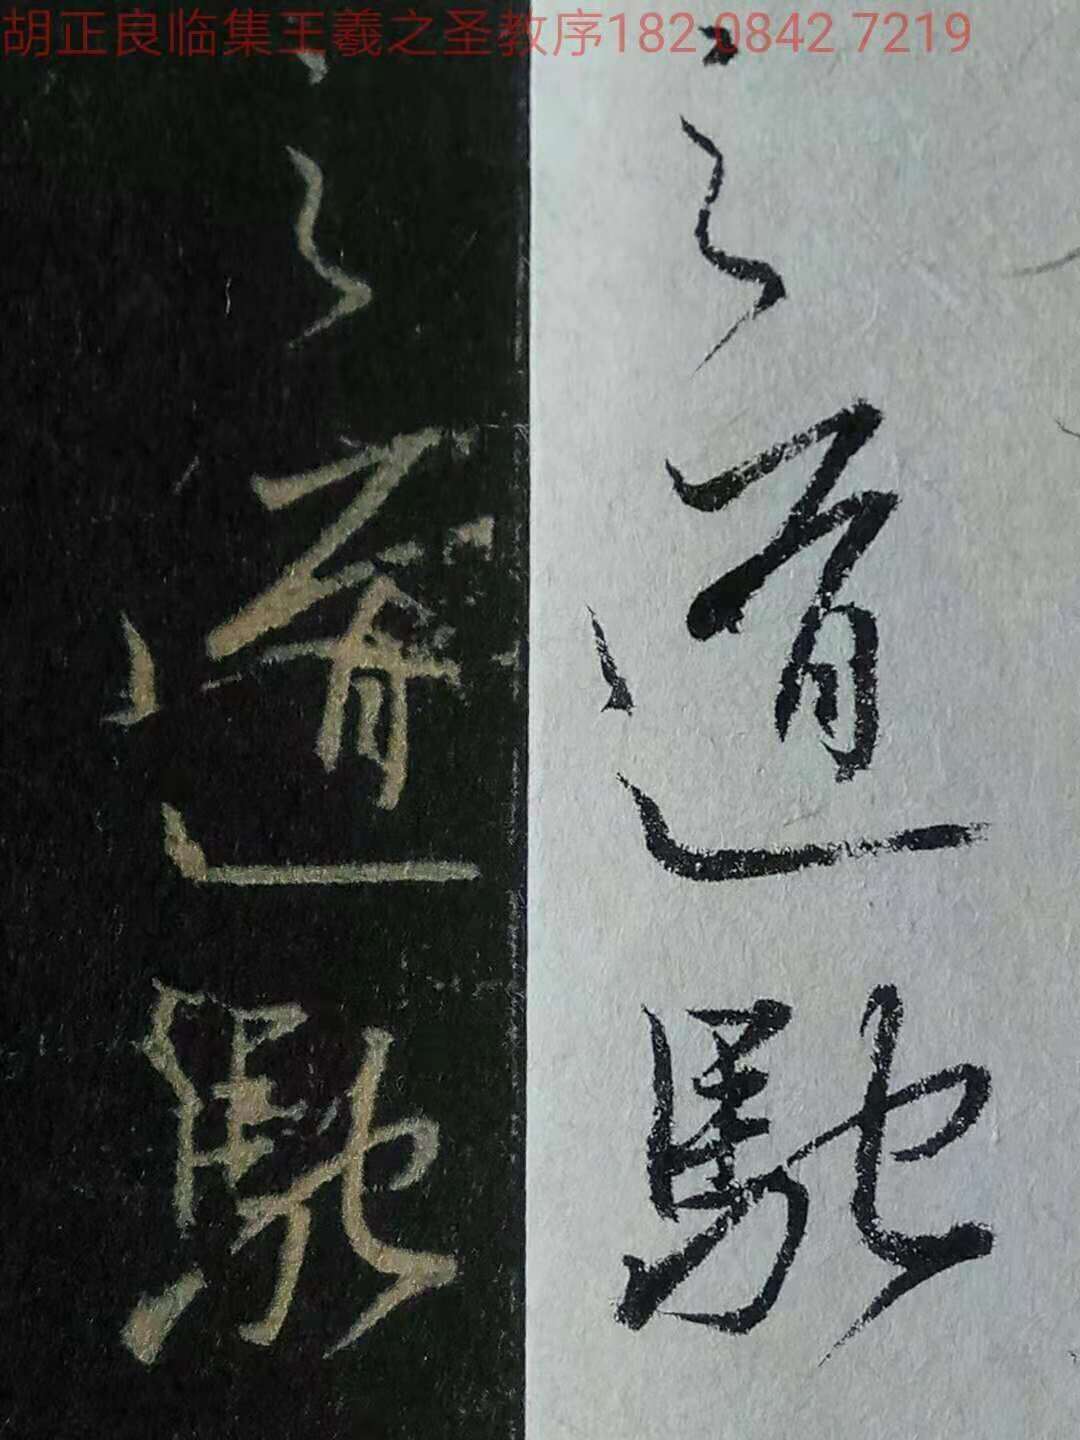 胡正良临集王羲之圣教序182 0842 7219
之道馳
之道馳